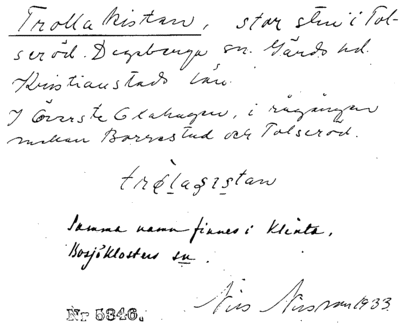 Trolla kistan, stor sten i Tol-
seröd. Degeberga sn. Gärds hd.
Kristianstads län.
I Överste Olahagen, i rågången
mellan Borrestad och Tolseröd.
Samma namn finnes i Klinta,
Bosjöklosters sn.
Nr 5346. Nils Nilsson 1933.